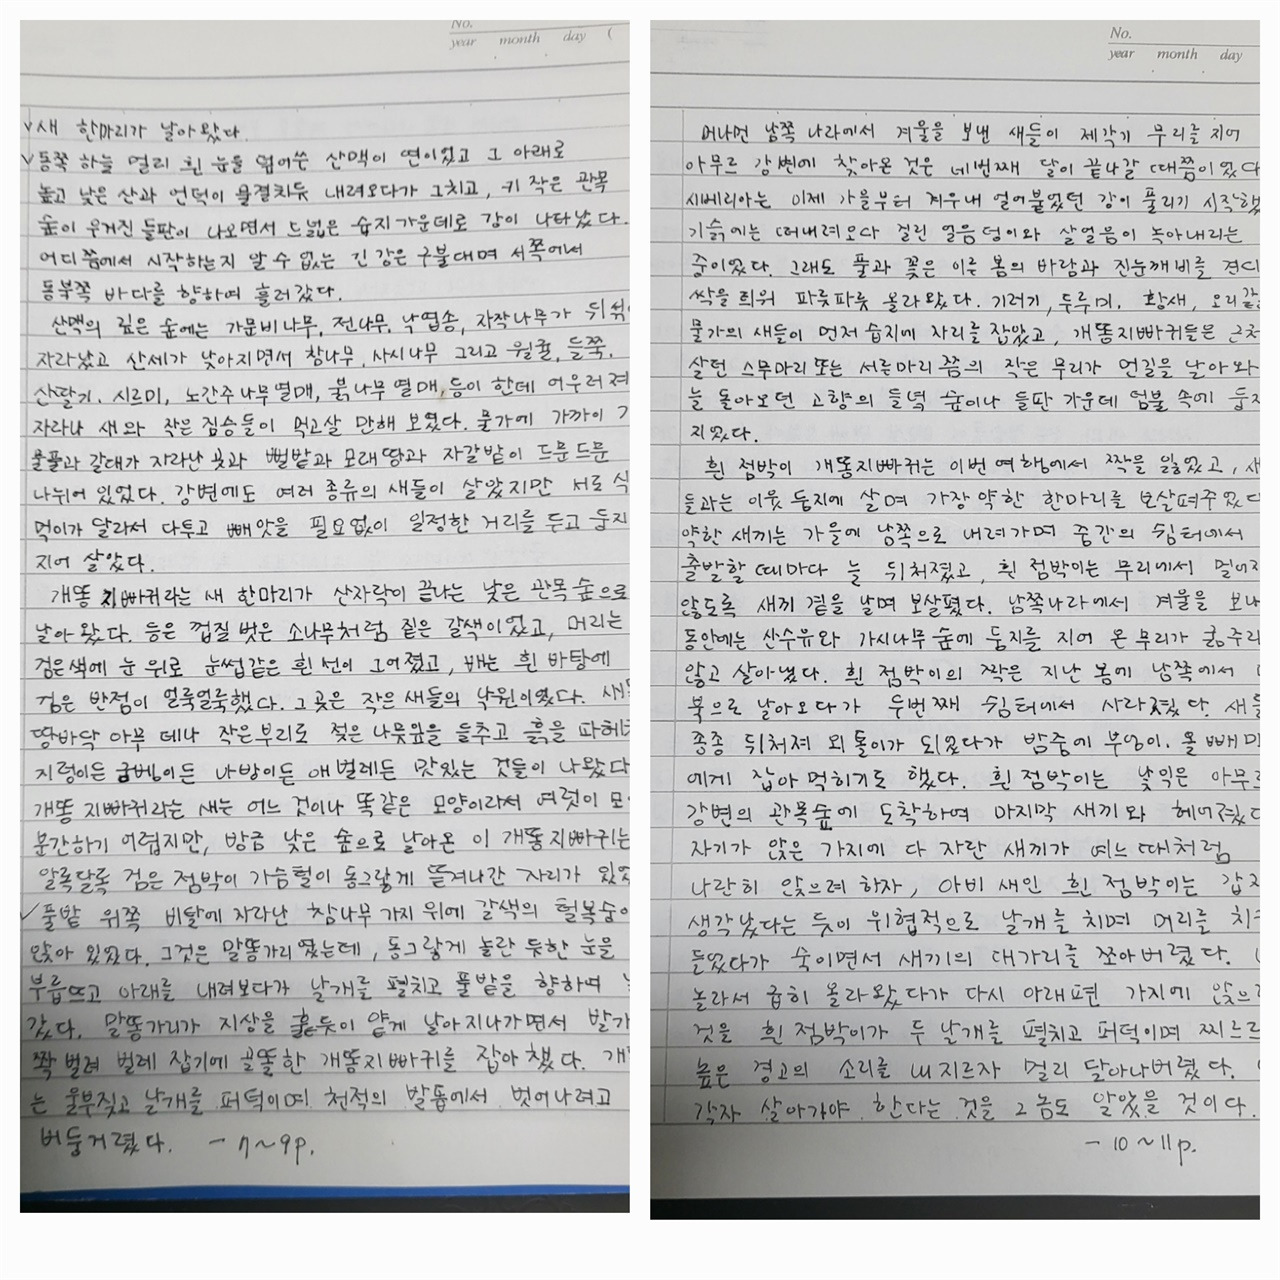 No.
year month day (
새 한마리가 날아왔다.
동쪽 하늘 멀리 흰 눈을 덮어쓴 산맥이 연이었고 그 아래로
높고 낮은 산과 언덕이 물결치듯 내려오다가 그치고, 키 작은 관목
숲이 우거진 들판이 나오면서 드넓은 습지 가운데로 강이 나타났다.
어디쯤에서 시작하는지 알 수 없는 긴 강은 구불대며 서쪽에서
동북쪽 바다를 향하여 흘러갔다.
산맥의 깊은 숲에는 가문비나무, 전나무, 낙엽송, 자작나무가 뒤섞
자라났고 산세가 낮아지면서 참나무, 사시나무 그리고 월귤, 들쭉,
산딸기, 시르미, 노간주나무열매, 붉나무 열매, 등이 한데 어우러져
자라나 새와 작은 짐승들이 먹고살 만해 보였다. 물가에 가까이
물풀과 갈대가 자라난 곳과 뻘밭과 모래땅과 자갈밭이 드문드문
나뉘어 있었다. 강변에도 여러 종류의 새들이 살았지만 서로 식
먹이가 달라서 다투고 빼앗을 필요없이 일정한 거리를 두고 둥지
지어 살았다.
개똥지빠귀라는 새 한마리가 산자락이 끝나는 낮은 관목 숲으로
날아 왔다. 등은 껍질 벗은 소나무처럼 짙은 갈색이었고, 머리는
검은색에 눈 위로 눈썹같은 흰 선이 그어졌고, 배는 흰 바탕에
검은 반점이 얼룩얼룩했다. 그 곳은 작은 새들의 낙원이었다. 새
땅바닥 아무 데나 작은부리로 젖은 나뭇잎을 들추고 흙을 파헤
지렁이든 굼벵이든 나방이든 애벌레든 맛있는 것들이 나왔다
개똥지빠귀라는 새는 어느 것이나 똑같은 모양이라서 여럿이 모
분간하기 어렵지만, 방금 낮은 숲으로 날아온 이 개똥지빠귀는
알록달록 검은 점박이 가슴털이 동그랗게 뜯겨나간 자리가 있었
풀밭 위쪽 비탈에 자라난 참나무 가지 위에 갈색의 털복숭이
앉아 있었다. 그것은 말똥가리였는데, 동그랗게 놀란 듯한 눈을
부릅뜨고 아래를 내려보다가 날개를 펼치고 풀밭을 향하여
갔다. 말똥가리가 지상을 훑듯이 얕게 날아지나가면서 발가
쫙 벌려 벌레 잡기에 골똘한 개똥지빠귀를 잡아챘다. 개
는 울부짖고 날개를 퍼덕이며 천적의 발톱에서 벗어나려고
버둥거렸다. - 7~9p.
No.
year month day
머나먼 남쪽 나라에서 겨울을 보낸 새들이 제각기 무리를 지어
아무르 강변에 찾아온 것은 네번째 달이 끝나갈 때쯤이었다
시베리아는 이제 가을부터 겨우내 얼어붙었던 강이 풀리기 시작했
기슭에는 떠내려오다 걸린 얼음덩이와 살얼음이 녹아내리는
중이었다. 그래도 풀과 꽃은 이른 봄의 바람과 진눈깨비를 견디
싹을 틔워 파릇파릇 올라왔다. 기러기, 두루미, 황새, 오리같
물가의 새들이 먼저 습지에 자리를 잡았고, 개똥지빠귀들은 근처
살던 스무마리 또는 서른마리 쯤의 작은 무리가 먼길을 날아와
늘 돌아오던 고향의 들녘 숲이나 들판 가운데 덤불 속에 둥지
지었다.
흰 점박이 개똥지빠귀는 이번 여행에서 짝을 잃었고, 새
들과는 이웃 둥지에 살며 가장 약한 한마리를 보살펴주었다
약한 새끼는 가을에 남쪽으로 내려가며 중간의 쉼터에서
출발할 때마다 늘 뒤처졌고, 흰 점박이는 무리에서 멀어지
않도록 새끼 곁을 날며 보살폈다. 남쪽나라에서 겨울을 보내
동안에는 산수유와 가시나무 숲에 둥지를 지어 온 무리가 굶주리
않고 살아냈다. 흰 점박이의 짝은 지난 봄에 남쪽에서
북으로 날아오다가 두번째 쉼터에서 사라졌다. 새들
종종 뒤처져 외톨이가 되었다가 밤중에 부엉이, 올빼미
에게 잡아 먹히기도 했다. 흰 점박이는 낯익은 아무르
강변의 관목숲에 도착하여 마지막 새끼와 헤어졌다
자기가 앉은 가지에 다 자란 새끼가 여느 때처럼
나란히 앉으려 하자, 아비 새인 흰 점박이는 갑자
생각났다는 듯이 위협적으로 날개를 치며 머리를 치
들었다가 숙이면서 새끼의 대가리를 쪼아버렸다.
놀라서 급히 올라왔다가 다시 아래편 가지에 앉으
것을 흰 점박이가 두 날개를 펼치고 퍼덕이며 찌르르
높은 경고의 소리를 내지르자 멀리 달아나버렸다.
각자 살아가야 한다는 것을 그놈도 알았을 것이다.
- 10~11p.